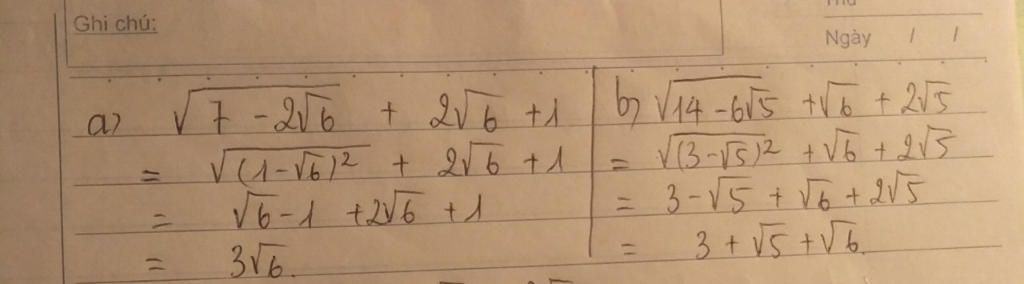 Ghi chú:
Ngày / /
a) √(7 - 2√6) + 2√6 + 1
= √((1-√6)²) + 2√6 + 1
= √6 - 1 + 2√6 + 1
= 3√6.
b) √(14 - 6√5) + √6 + 2√5
= √((3-√5)²) + √6 + 2√5
= 3 - √5 + √6 + 2√5
= 3 + √5 + √6.